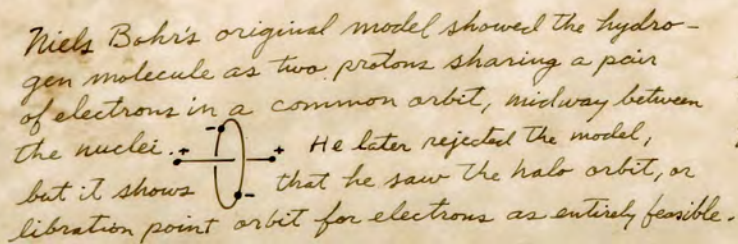 Niels Bohr's original model showed the hydro-
gen molecule as two protons sharing a pair
of electrons in a common orbit, midway between
the nuclei. + - - + He later rejected the model,
but it shows that he saw the halo orbit, or
libration point orbit for electrons as entirely feasible.